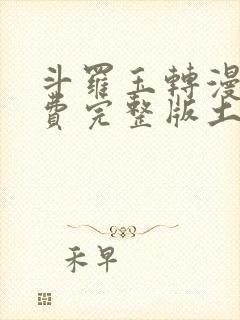 斗羅玉轉漫
費完整版土
禾早